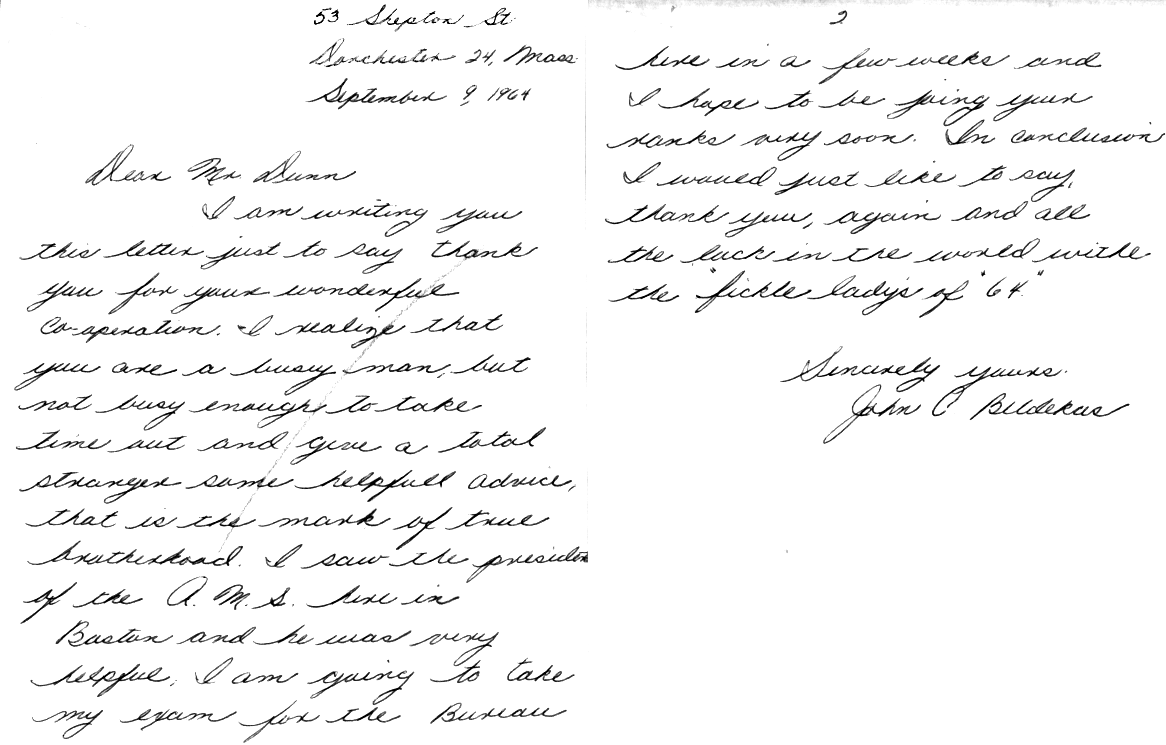 53 Shepton St.
Dorchester 24, Mass.
September 9, 1964
Dear Mr. Dunn
I am writing you
this letter just to say thank
you for your wonderful
Co-operation. I realize that
you are a busy man, but
not busy enough to take
time out and give a total
stranger some helpfull advice,
that is the mark of true
brotherhood. I saw the president
of the A.M.S. here in
Boston and he was very
helpful, I am going to take
my exam for the Bureau
2
here in a few weeks and
I hope to be joing your
ranks very soon. In conclusion
I would just like to say,
thank you, again and all
the luck in the world withe
the "fickle ladys of "64"
Sincerely yours.
John C